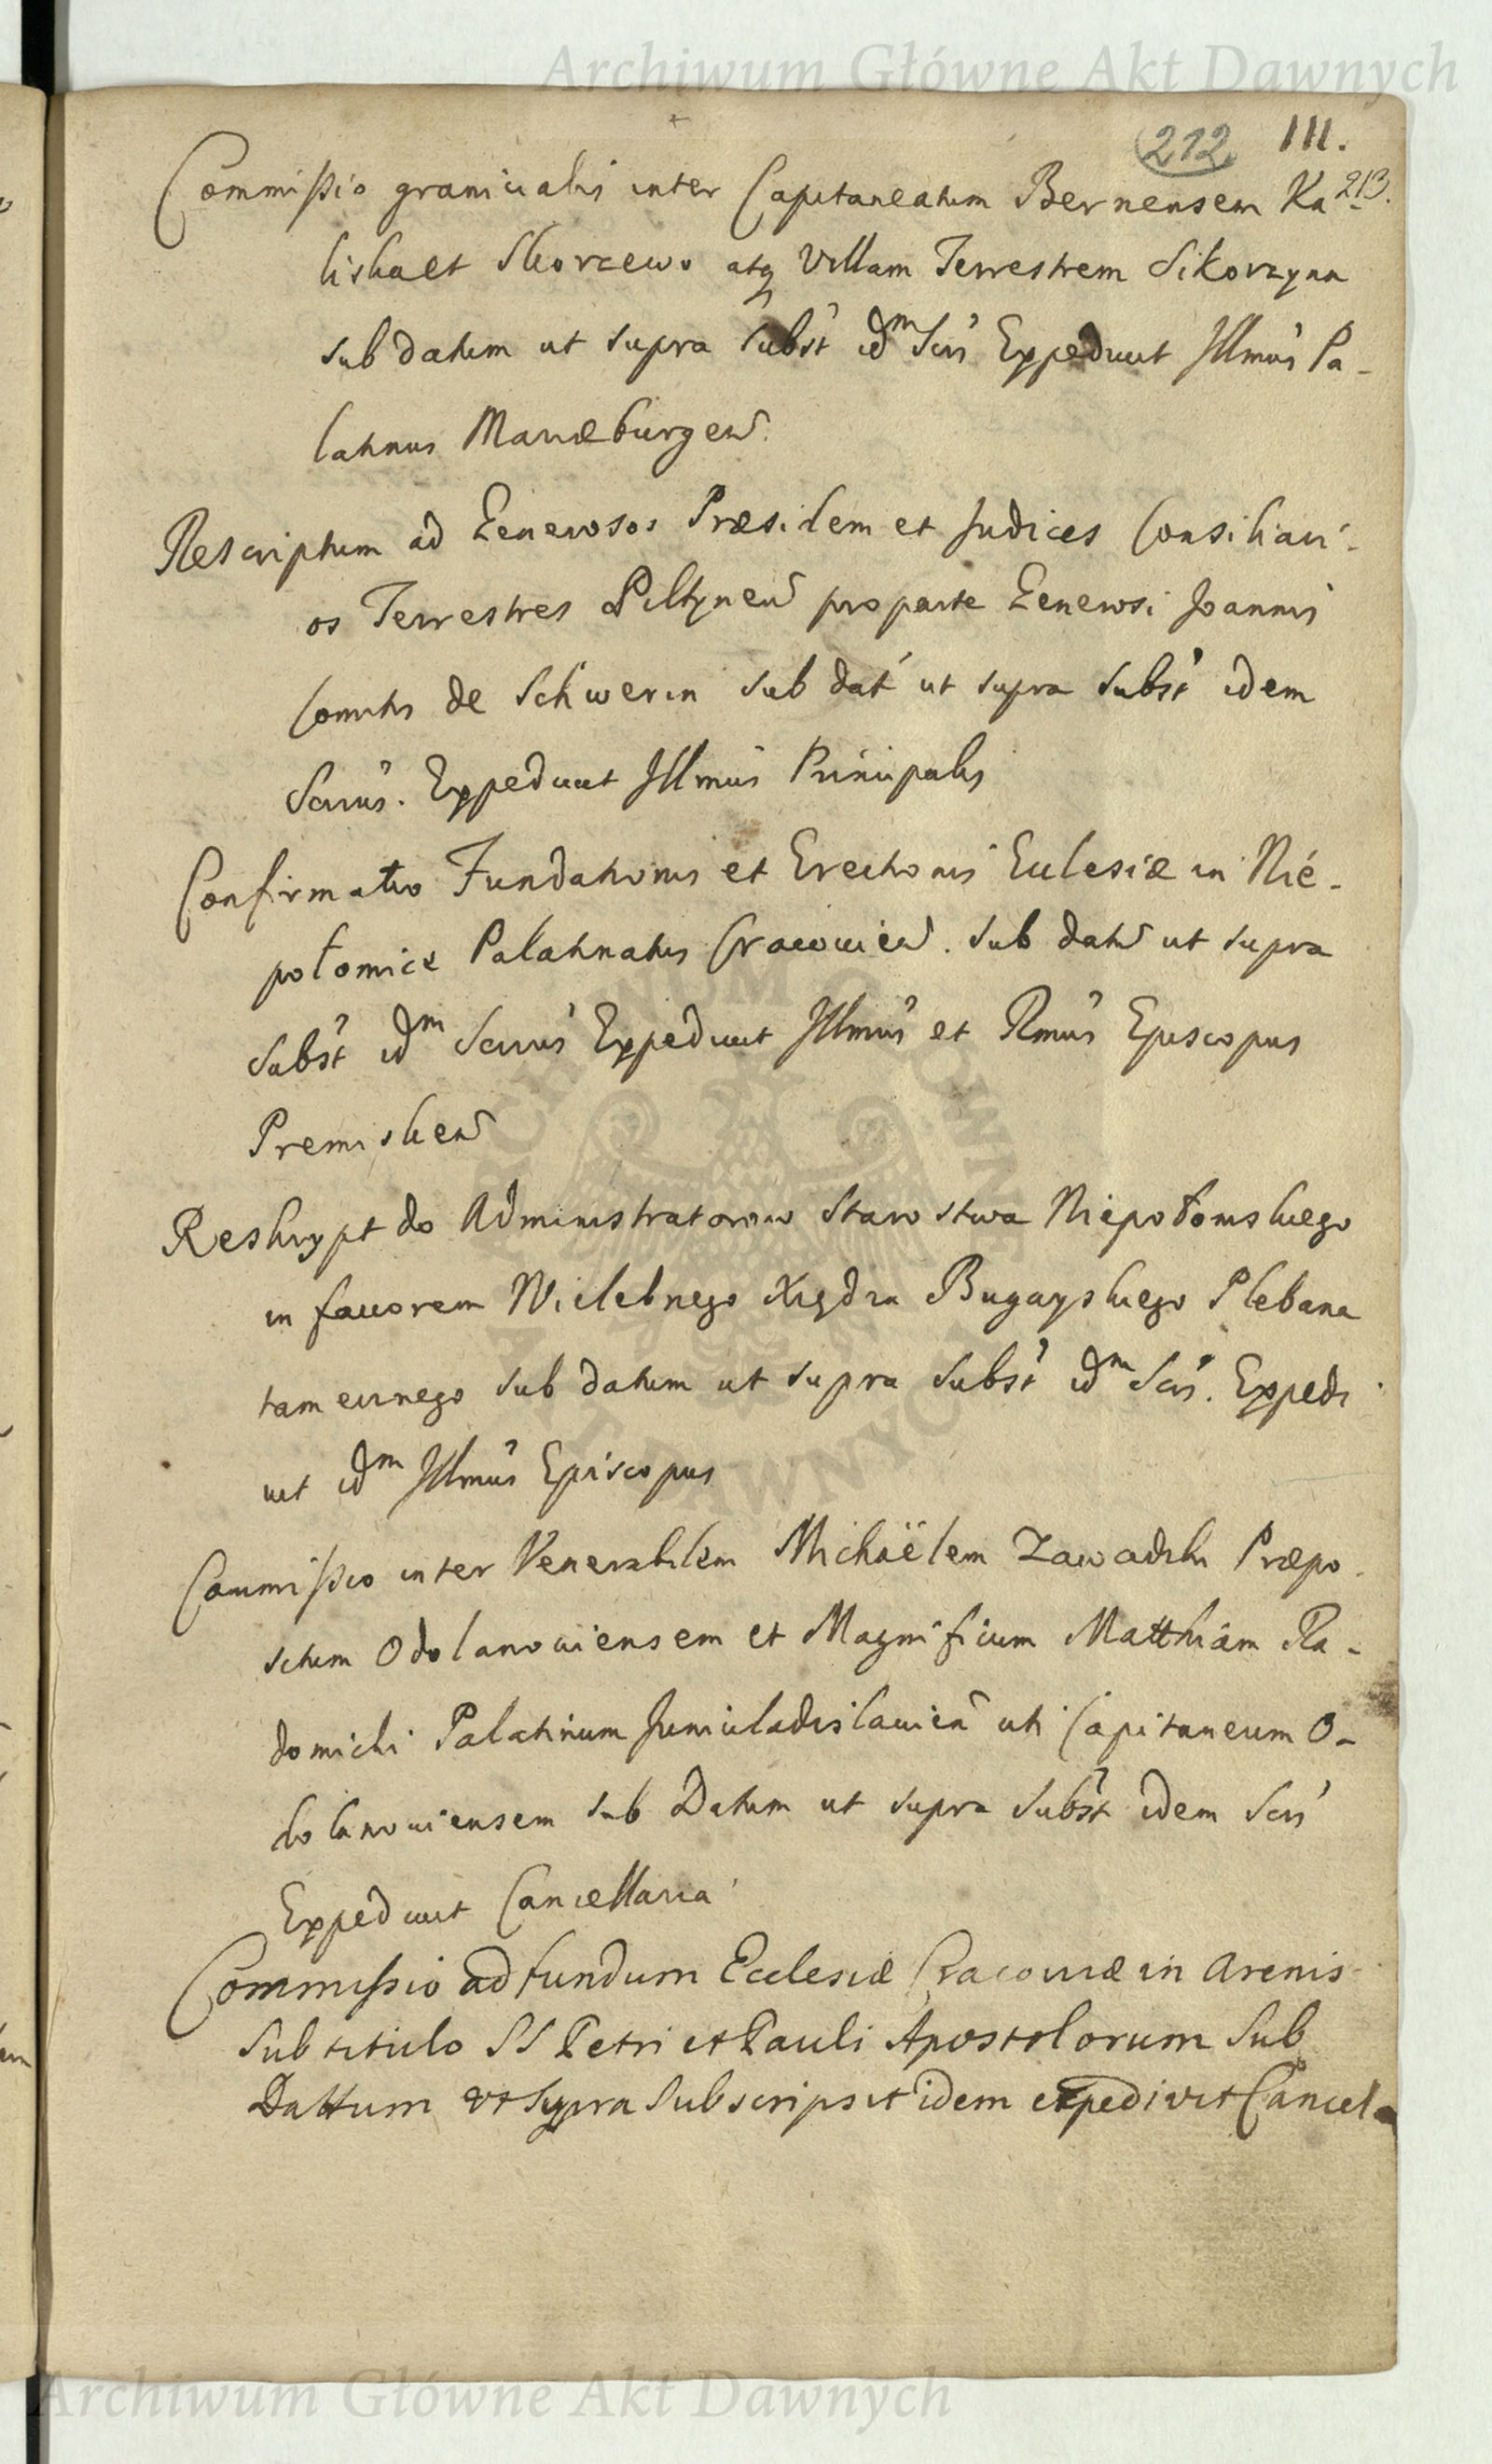 Archiwum Główne Akt Dawnych
212 III.
213.
Commissio granicialis inter Capitaneatum Bernensem Ka
liska et Skorzewo atq Villam Terrestrem Sikorzyna
sub datum ut supra subst' id^m Scrs' Expedivit Illmus' Pa-
latinus Mariæburgen.
Rescriptum ad Generosos Præsidem et Judices Consiliari-
os Terrestres Piltynen pro parte Generosi Joannis
Comitis de Schwerin sub dat' ut supra subst' idem
Scrius'. Expedivit Illmus Principalis
Confirmatio Fundationis et Erectionis Ecclesiæ in Nie-
połomice Palatinatus Cracovien. sub datu ut supra
Subst' id^m Scrius' Expedivit Illmus' et Rmus' Episcopus
Premislien
Reskrypt do Administratorow Starostwa Niepołomskiego
in favorem Wielebnego Xiędza Bugayskiego Plebana
tameicznego sub datum ut supra subst' id^m Scrs'. Expedi
vit id^m Illmus' Episcopus
Commissio inter Venerabilem Michaëlem Zawadzki Præpo
situm Odolanoviensem et Magnificum Matthiam Ra-
domicki Palatinum Juniuladislavien uti Capitaneum O-
dolanoviensem sub Datum ut supra Subst' idem Scrs'
Expedivit Cancellaria
Commissio ad fundum Ecclesiæ Cracoviæ in Arenis
Sub titulo SS Petri et Pauli Apostolorum Sub
Dattum ut Supra Subscripsit idem expedivit Cancel-
Archiwum Główne Akt Dawnych